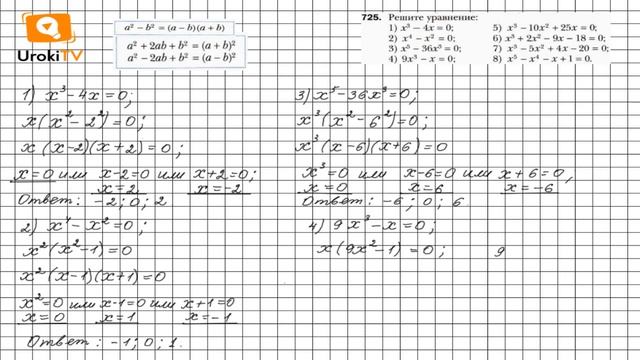 UrokiTV
a² − b² = (a − b)(a + b)
a² + 2ab + b² = (a + b)²
a² − 2ab + b² = (a − b)²
725. Решите уравнение:
1) x³ − 4x = 0;
2) x⁴ − x² = 0;
3) x⁵ − 36x³ = 0;
4) 9x³ − x = 0;
5) x³ − 10x² + 25x = 0;
6) x³ + 2x² − 9x − 18 = 0;
7) x³ − 5x² + 4x − 20 = 0;
8) x⁵ − x⁴ − x + 1 = 0.
1) x³ − 4x = 0;
x(x² − 2²) = 0;
x (x−2)(x+2) = 0;
x=0 или x−2=0 или x+2=0;
x=2 x=−2
Ответ: −2; 0; 2
2) x⁴ − x² = 0;
x²(x²−1) = 0
x²(x−1)(x+1) = 0
x²=0 или x−1=0 или x+1=0
x=0 x=1 x=−1
Ответ: −1; 0; 1.
3) x⁵ − 36x³ = 0;
x³(x² − 6²) = 0;
x³(x−6)(x+6) = 0
x³=0 или x−6=0 или x+6=0,
x=0 x=6 x=−6
Ответ: −6; 0; 6
4) 9x³ − x = 0;
x(9x²−1) = 0; 9